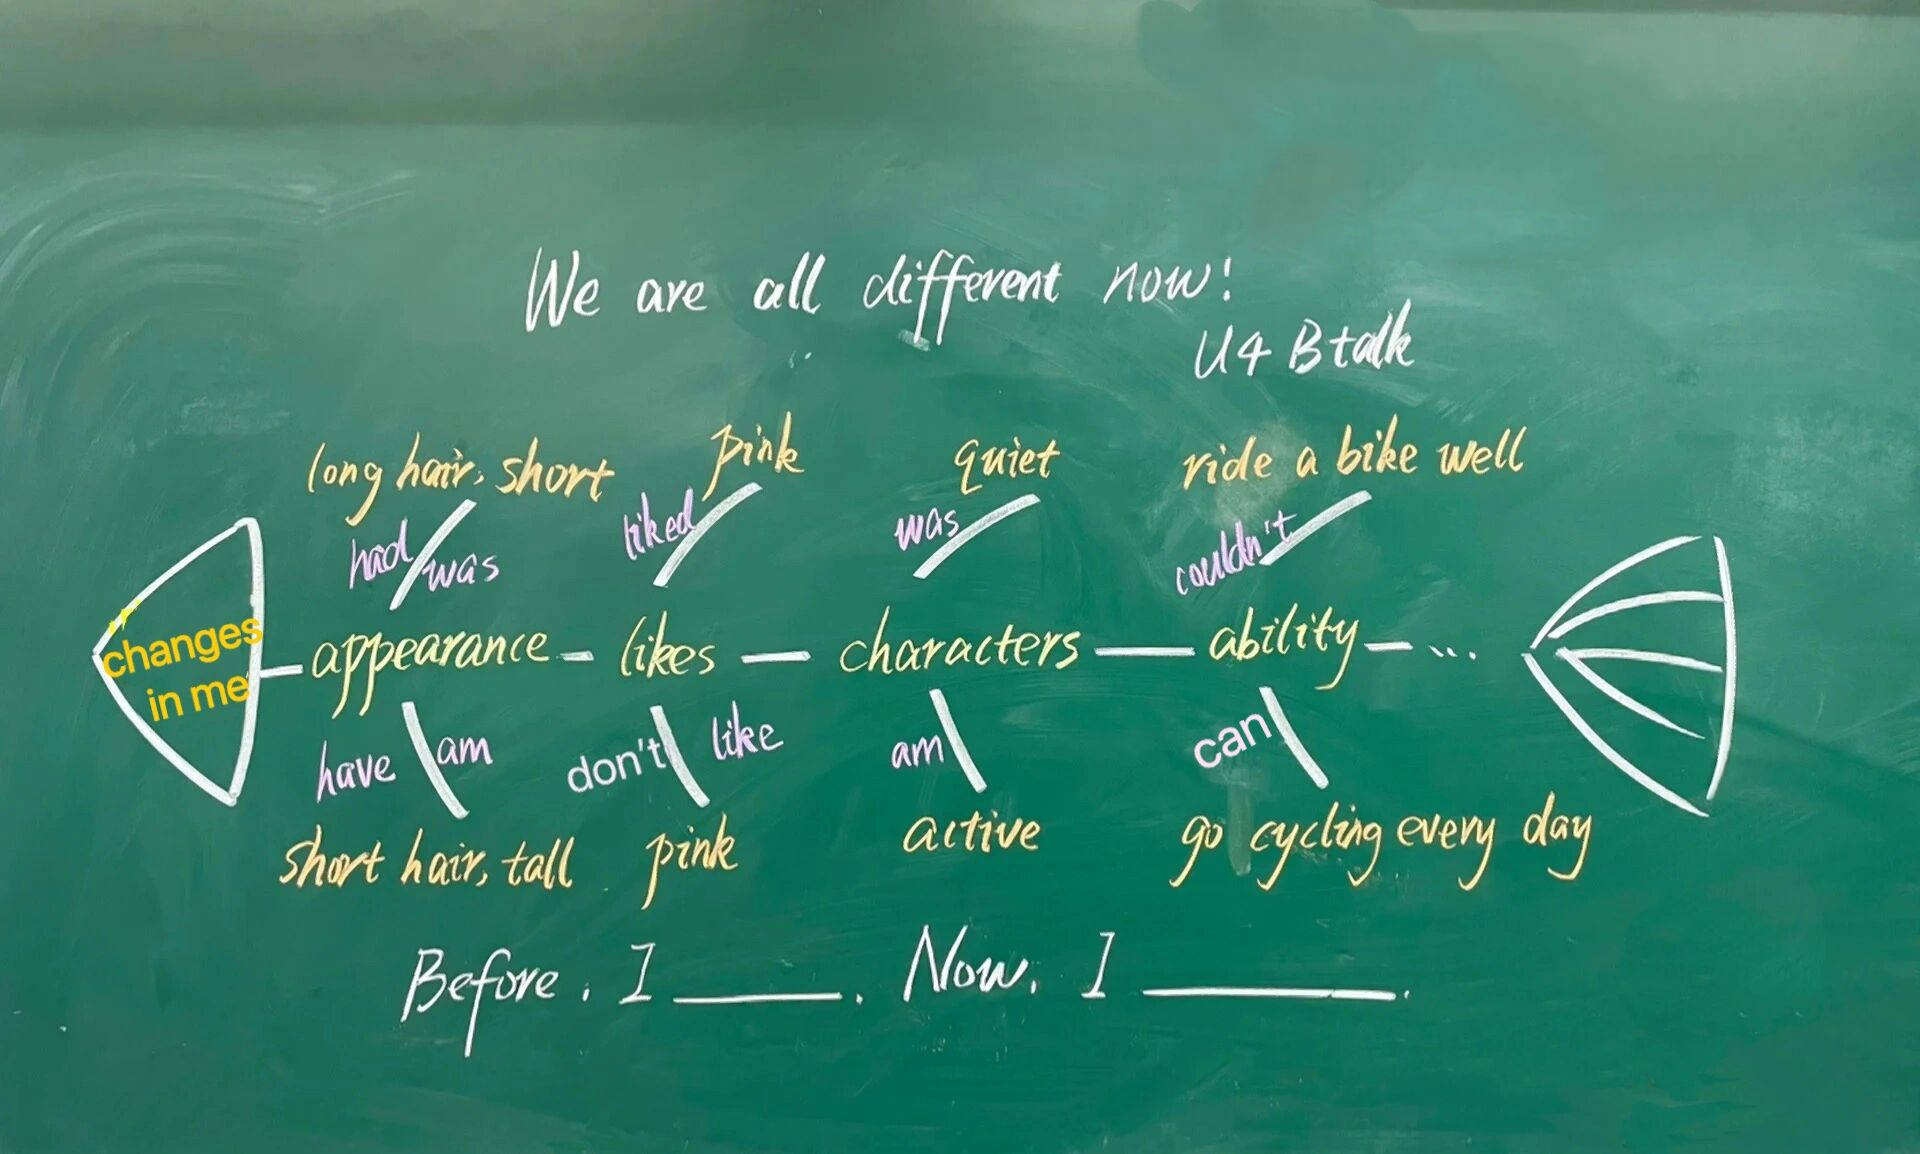 We are all different now!
U4 B talk
long hair, short pink quiet ride a bike well
had was liked was couldn't
changes in me
appearance - likes — characters — ability - ...
have am don't like am can
short hair, tall pink active go cycling every day
Before, I ______. Now, I ______.